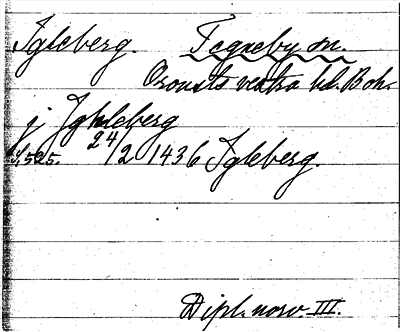 Igleberg. Tegneby sn.
Orousts vestra hd. Boh.
j Ighleberg
S. 525. 24/2 1436 Igleberg.
Dipl. norv. III.